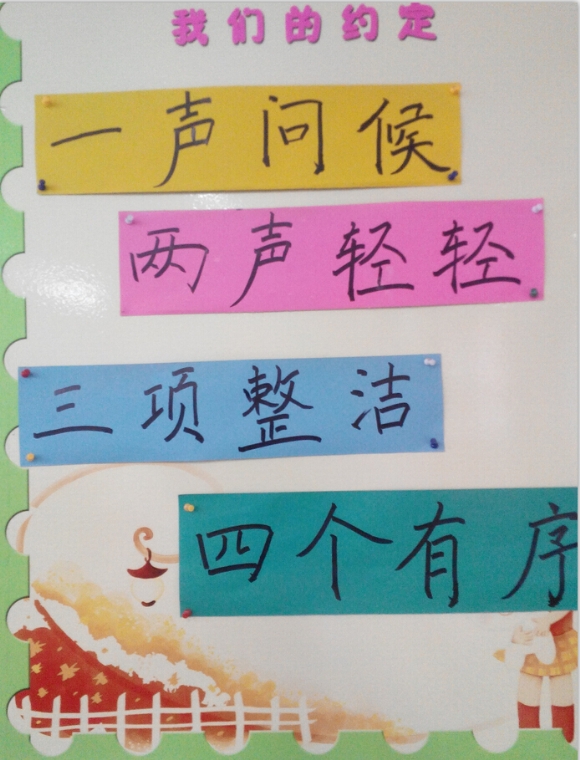 我们的约定
一声问候
两声轻轻
三项整洁
四个有序